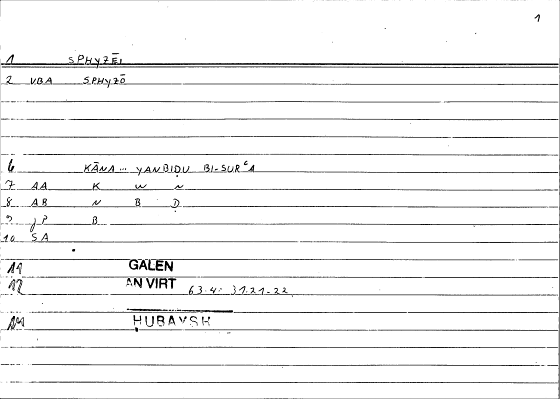 1
1 SPHYZĒI
2 VBA SPHYZŌ
6 KĀNA... YANBIḌU BI-SURʿA
7 AA K W N
8 AB N B Ḍ
9 JP B
10 SA
11 GALEN
12 AN VIRT 63.4: 31.21-22
14 ḤUBAYSH